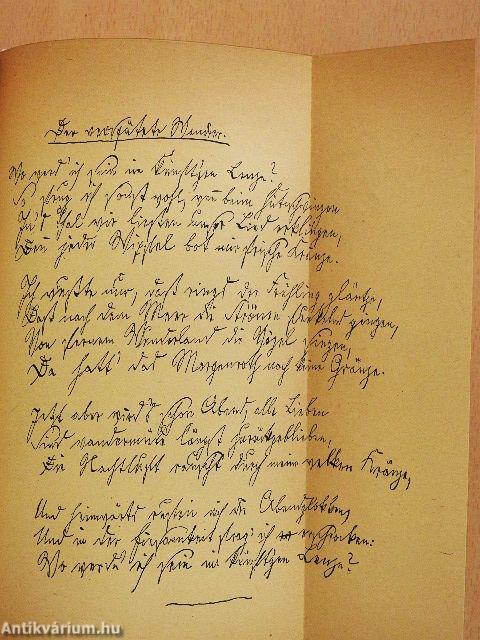 Der verspätete Wandrer.
Wo werd' ich sein im künft'gen Lenze?
So frug ich sonst wohl, wenn beim Hüteschwingen
In's Thal wir ließen unser Lied erklingen,
Denn jeder Wipfel bot mir frische Kränze.
Ich wußte nur, daß rings der Frühling glänze,
Daß nach dem Meer die Ströme funkelnd gingen,
Von fernem Wunderland die Vögel singen,
Da hatt' das Morgenroth noch keine Gränze.
Jetzt aber wird's schon Abend, alle Lieben
Sind wandermüde längst zurückgeblieben,
Die Nachtluft rauscht durch meine welken Kränze,
Und heimwärts rufen mich die Abendglocken,
Und in der Einsamkeit frag' ich erschrocken:
Wo werde ich sein im künft'gen Lenze?
Antikvárium.hu